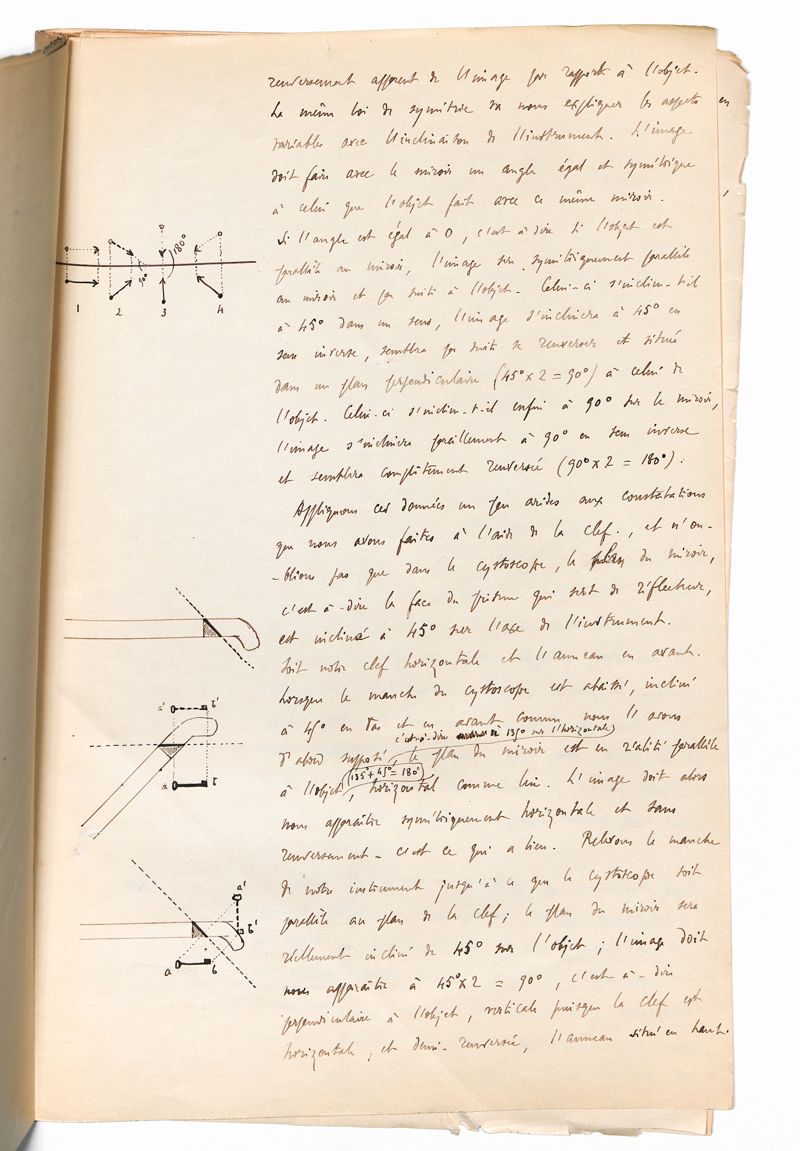 renversement apparent de l'image par rapport à l'objet.
La même loi de symétrie va nous expliquer les aspects en
variables avec l'inclinaison de l'instrument. L'image
doit faire avec le miroir un angle égal et symétrique
à celui que l'objet fait avec ce même miroir.
Si l'angle est égal à 0, c'est à dire si l'objet est
parallèle au miroir, l'image sera symétriquement parallèle
au miroir et par suite à l'objet. Celui-ci s'incline-t-il
à 45° dans un sens, l'image s'inclinera à 45° en
sens inverse, semblera par suite se renverser et située
dans un plan perpendiculaire (45° x 2 = 90°) à celui de
l'objet. Celui-ci s'incline-t-il enfin à 90° sur le miroir,
l'image s'inclinera pareillement à 90° en sens inverse
et semblera complètement renversée (90° x 2 = 180°).
Appliquons ces données un peu arides aux constatations
que nous avons faites à l'aide de la clef., et n'ou-
-blions pas que dans le cystoscope, le plan du miroir,
c'est à-dire la face du prisme qui sert de réflecteur,
est incliné à 45° sur l'axe de l'instrument.
Soit notre clef horizontale et l'anneau en avant.
Lorsque le manche du cystoscope est abaissé, incliné
à 45° en bas et en avant comme nous l'avons
c'est-à-dire à 135° sur l'horizontale)
d'abord supposé, le plan du miroir est en réalité parallèle
(135° + 45° = 180°)
à l'objet, horizontal comme lui. L'image doit alors
nous apparaître symétriquement horizontale et sans
renversement - c'est ce qui a lieu. Relevons le manche
de notre instrument jusqu'à ce que le cystoscope soit
parallèle au plan de la clef; le plan du miroir sera
réellement incliné de 45° sur l'objet; l'image doit
nous apparaître à 45° x 2 = 90°, c'est à-dire
perpendiculaire à l'objet, verticale puisque la clef est
horizontale, et demi-renversée, l'anneau situé en haut.
180°
1 2 3 4
a' b'
a b
a'
b'
a b